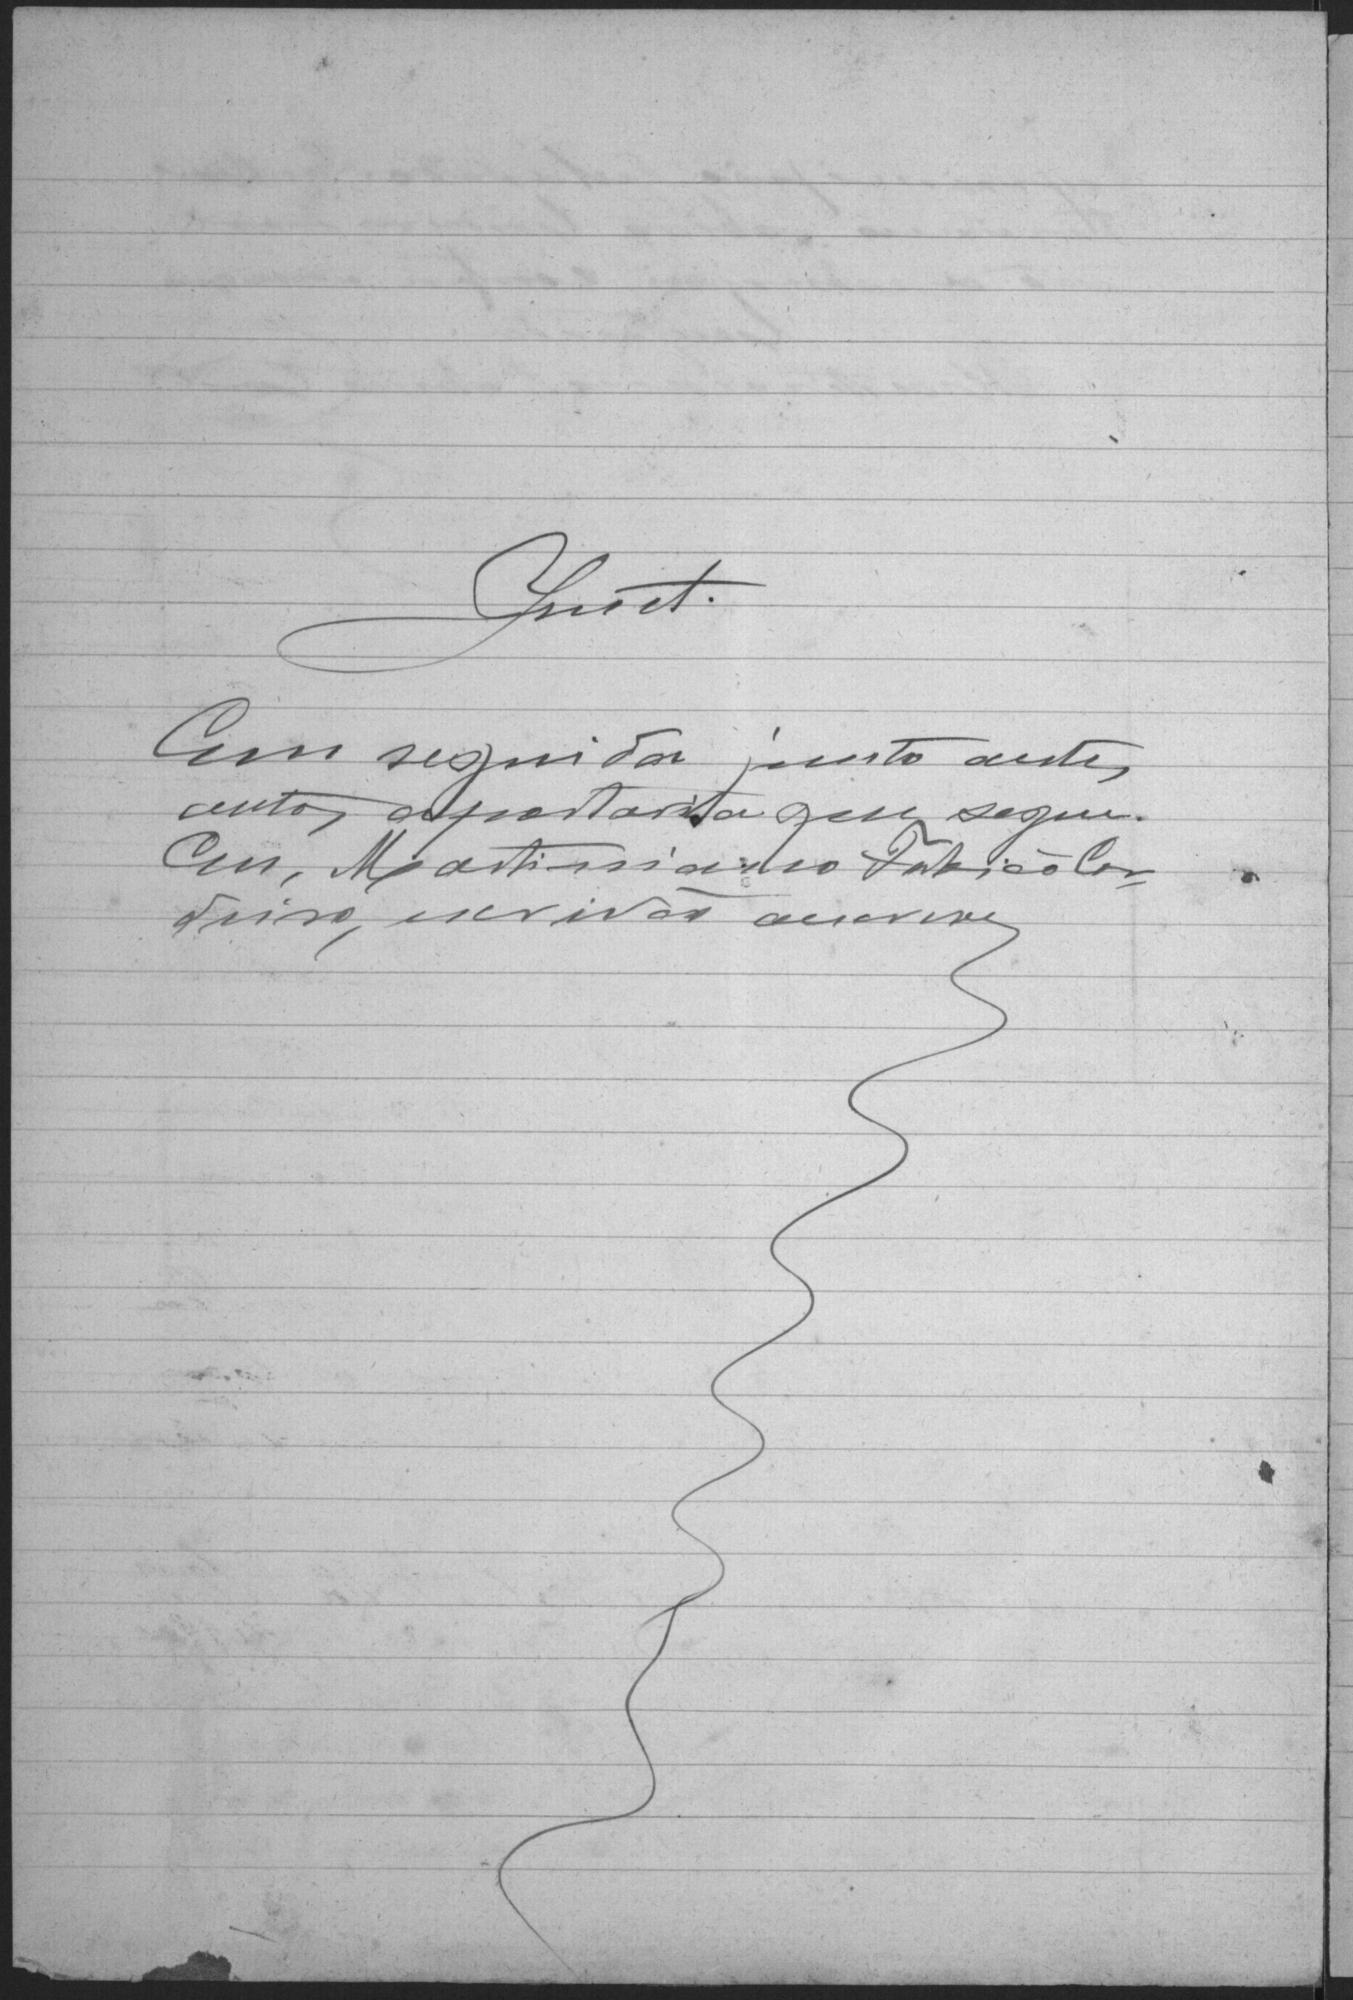 Junct.
Em seguida junto a estes
autos a portaria que segue.
Eu, Martiniano Fabião Cor-
deiro, escrivão a escrevi